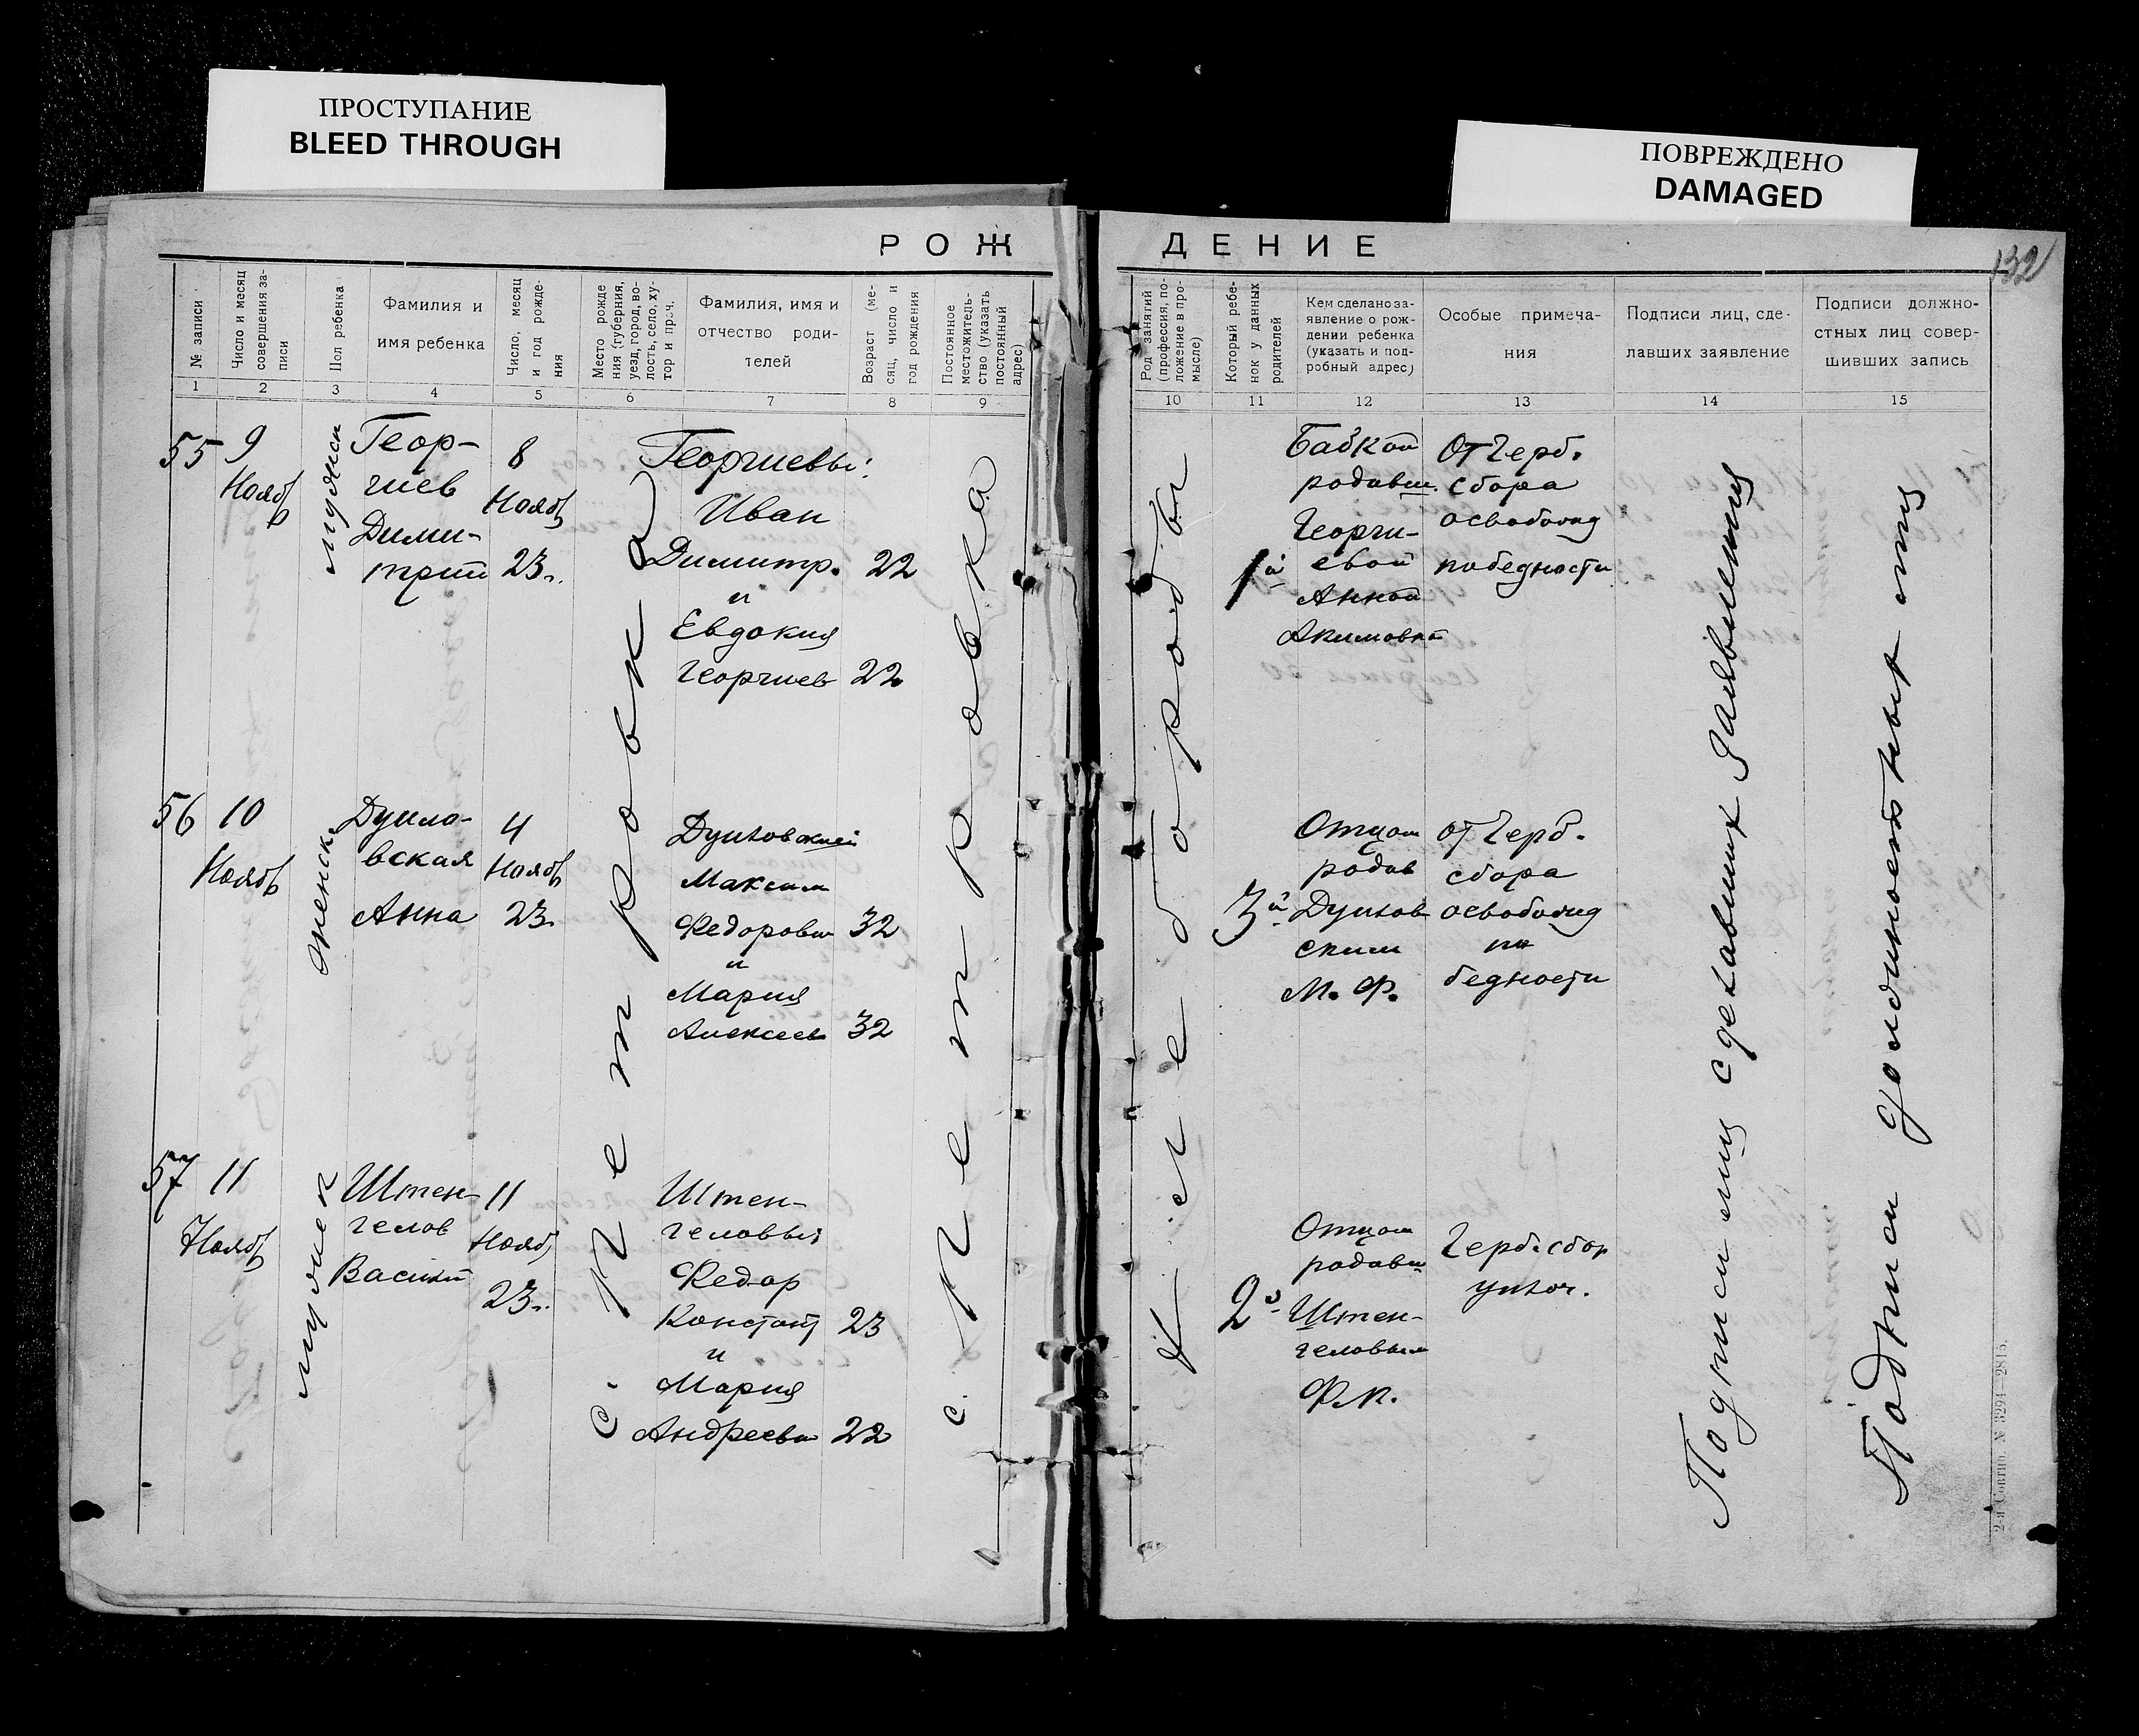 ПРОСТУПАНИЕ
BLEED THROUGH
ПОВРЕЖДЕНО
DAMAGED
РОЖ
ДЕНИЕ
132
№ записи
Число и месяц
совершения за-
писи
Пол ребенка
Фамилия и
имя ребенка
Число, месяц
и год рожде-
ния
Место рожде
ния (губерния,
уезд, город, во-
лость, село, ху-
тор и проч.
Фамилия, имя и
отчество роди-
телей
Возраст (ме-
сяц, число и
год рождения
Постоянное
местожитель-
ство (указать
постоянный
адрес)
Род занятий
(профессия, по-
ложение в про-
мысле)
Который ребе-
нок у данных
родителей
Кем сделано за-
явление о рож-
дении ребенка
(указать и под-
робный адрес)
Особые примеча-
ния
Подписи лиц, сде-
лавших заявление
Подписи должно-
стных лиц совер-
шивших запись
1 2 3 4 5 6 7 8 9
10 11 12 13 14 15
55
9
Нояб
мужск
Геор-
гиев
Дими-
трий
8
Нояб
23г.
Георгиевы:
Иван
Димитр. 22
и
Евдокия
Георгиев 22
1й
Бабкой
родивш.
Георги-
евой
Анной
Акимовной
От Герб.
сбора
освобожд
по бедности
56
10
Нояб
женск.
Дуило-
вская
Анна
4
Нояб
23г.
Максим
Федорови 32
и
Мария
Алексеев 32
3й
Отцом
родив
ским
М. Ф.
от Герб.
сбора
освобожд
по
бедности
57
11
Нояб
мужск
Штен-
гелов
Василий
11
Нояб
23г.
Штен-
геловы
Федор
Констант 23
и
Мария
Андреевн 22
2й
Отцом
родивш
Штен-
геловым
Ф.К.
Герб. сбор
уплоч.
с. Петровка
с. Петровка
Хлебороды
Подписи лиц сделавших заявления
Подписи должностных лиц
2-я Совтип. № 3294—2815.